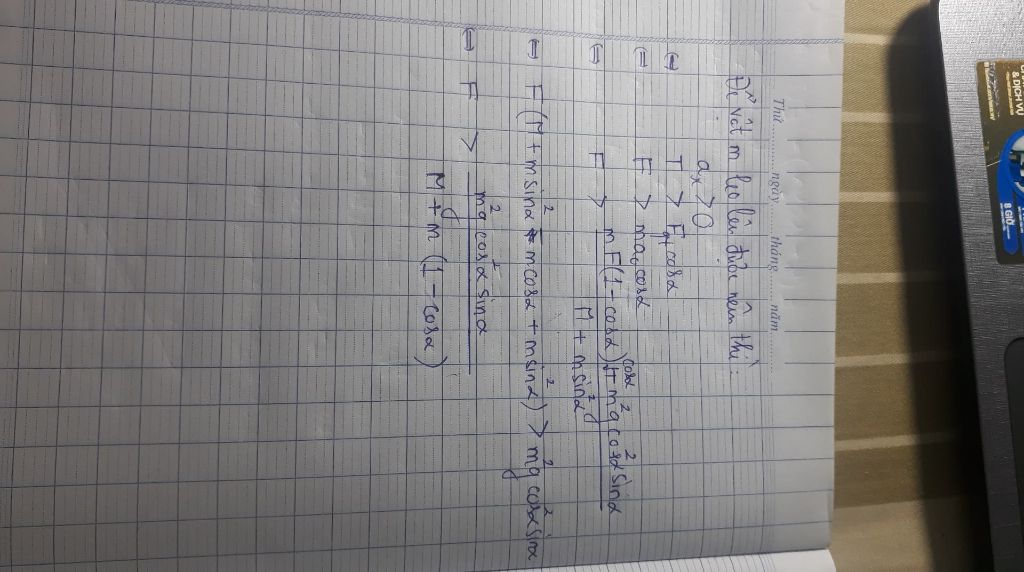 Thứ ........ ngày ........ tháng ........ năm ........
Để vật m leo lên được nêm thì:
aₓ > 0
⇔ T > F_qt cosα
⇔ F > ma₀ cosα
⇔ F > (mF(1 - cosα)cosα + m²g cos²α sinα) / (M + m sin²α)
⇔ F (M + m sin²α - m cosα + m sin²α) > m²g cos²α sinα
⇔ F > (m²g cos²α sinα) / (M + m (1 - cosα))
& DỊCH VỤ
8 GIỜ